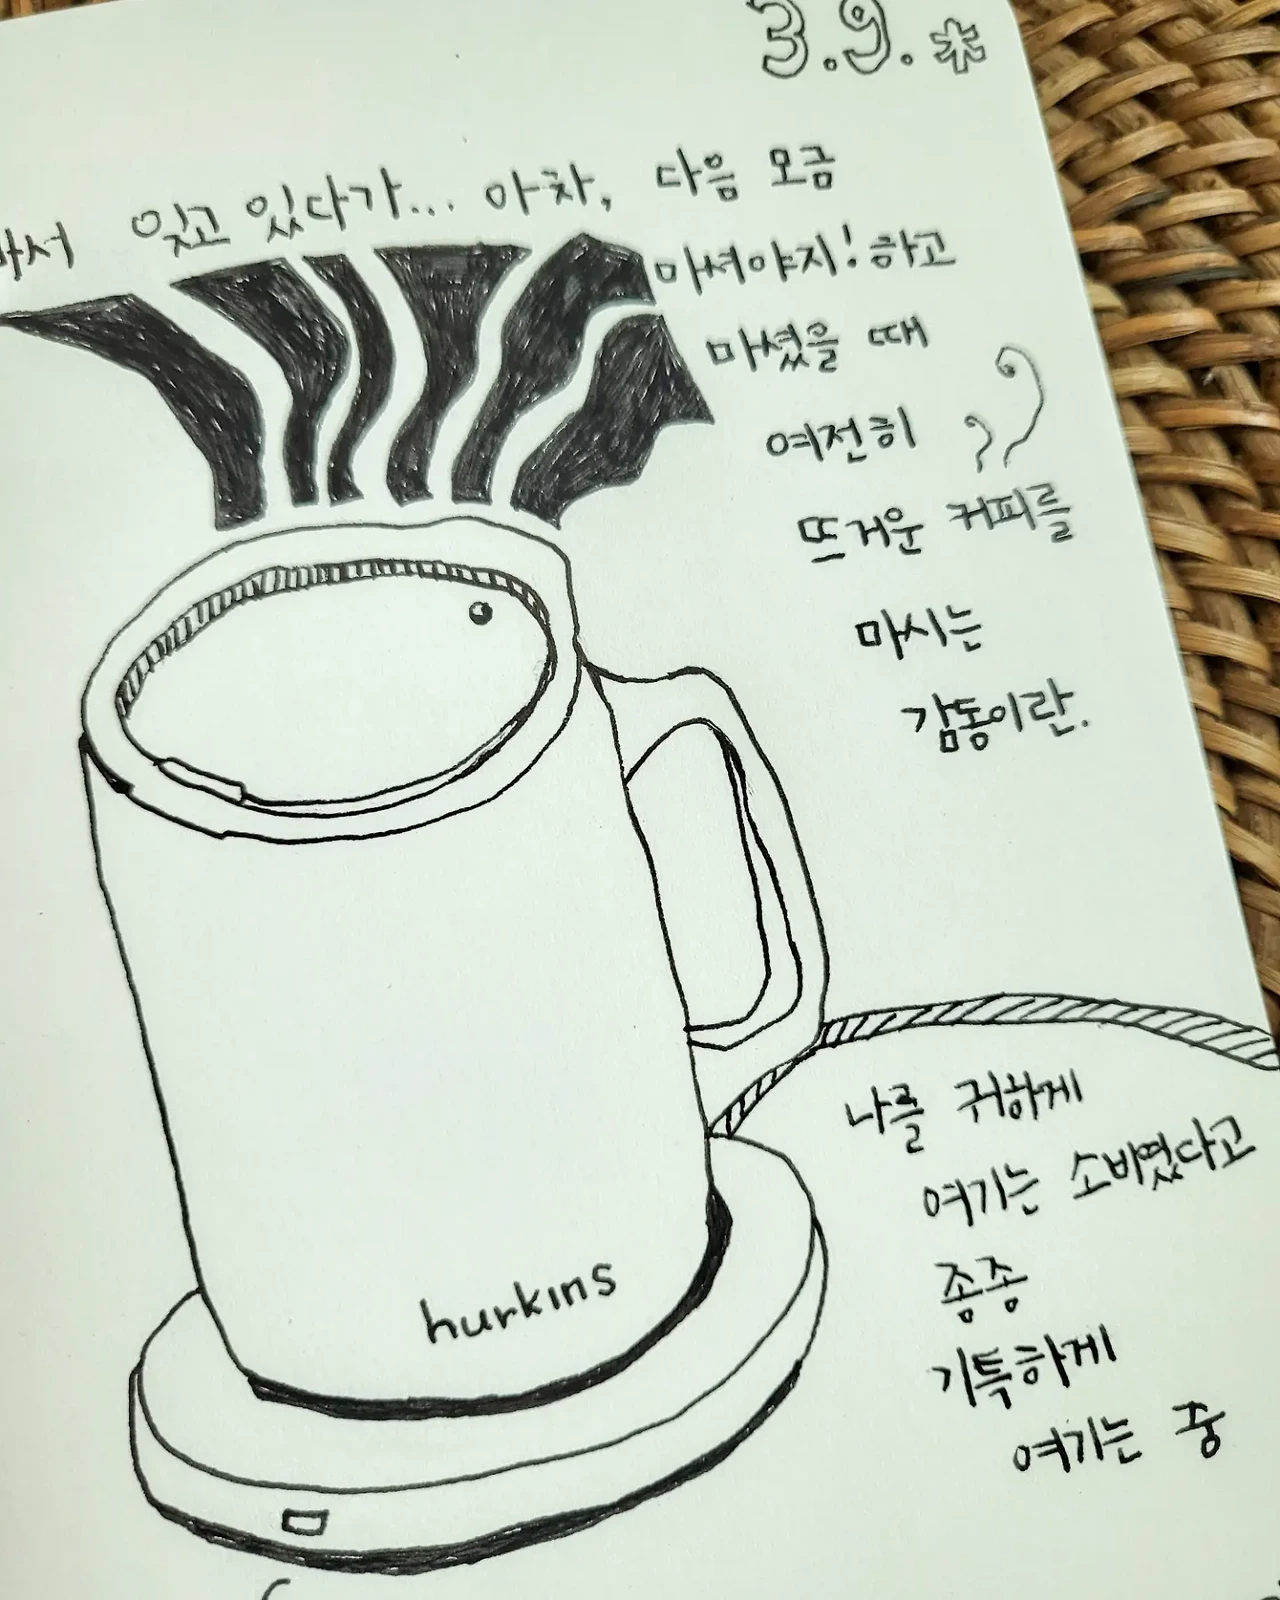 3.9.*
잊고 있다가... 아차, 다음 모금
마셔야지! 하고
마셨을 때
여전히
뜨거운 커피를
마시는
감동이란.
나를 귀하게
여기는 소비였다고
종종
기특하게
여기는 중
hurkins